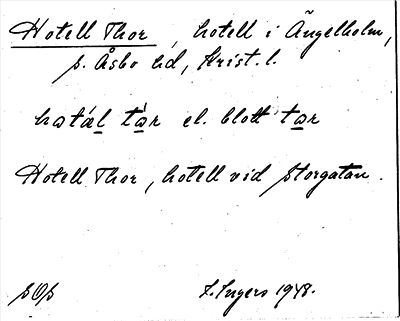 Hotell Thor, hotell i Ängelholm,
s. Åsbo hd, Krist. l.
hotǽl tár el. blott tar
Hotell Thor, hotell vid Storgatan.
sOs
I. Ingers 1948.